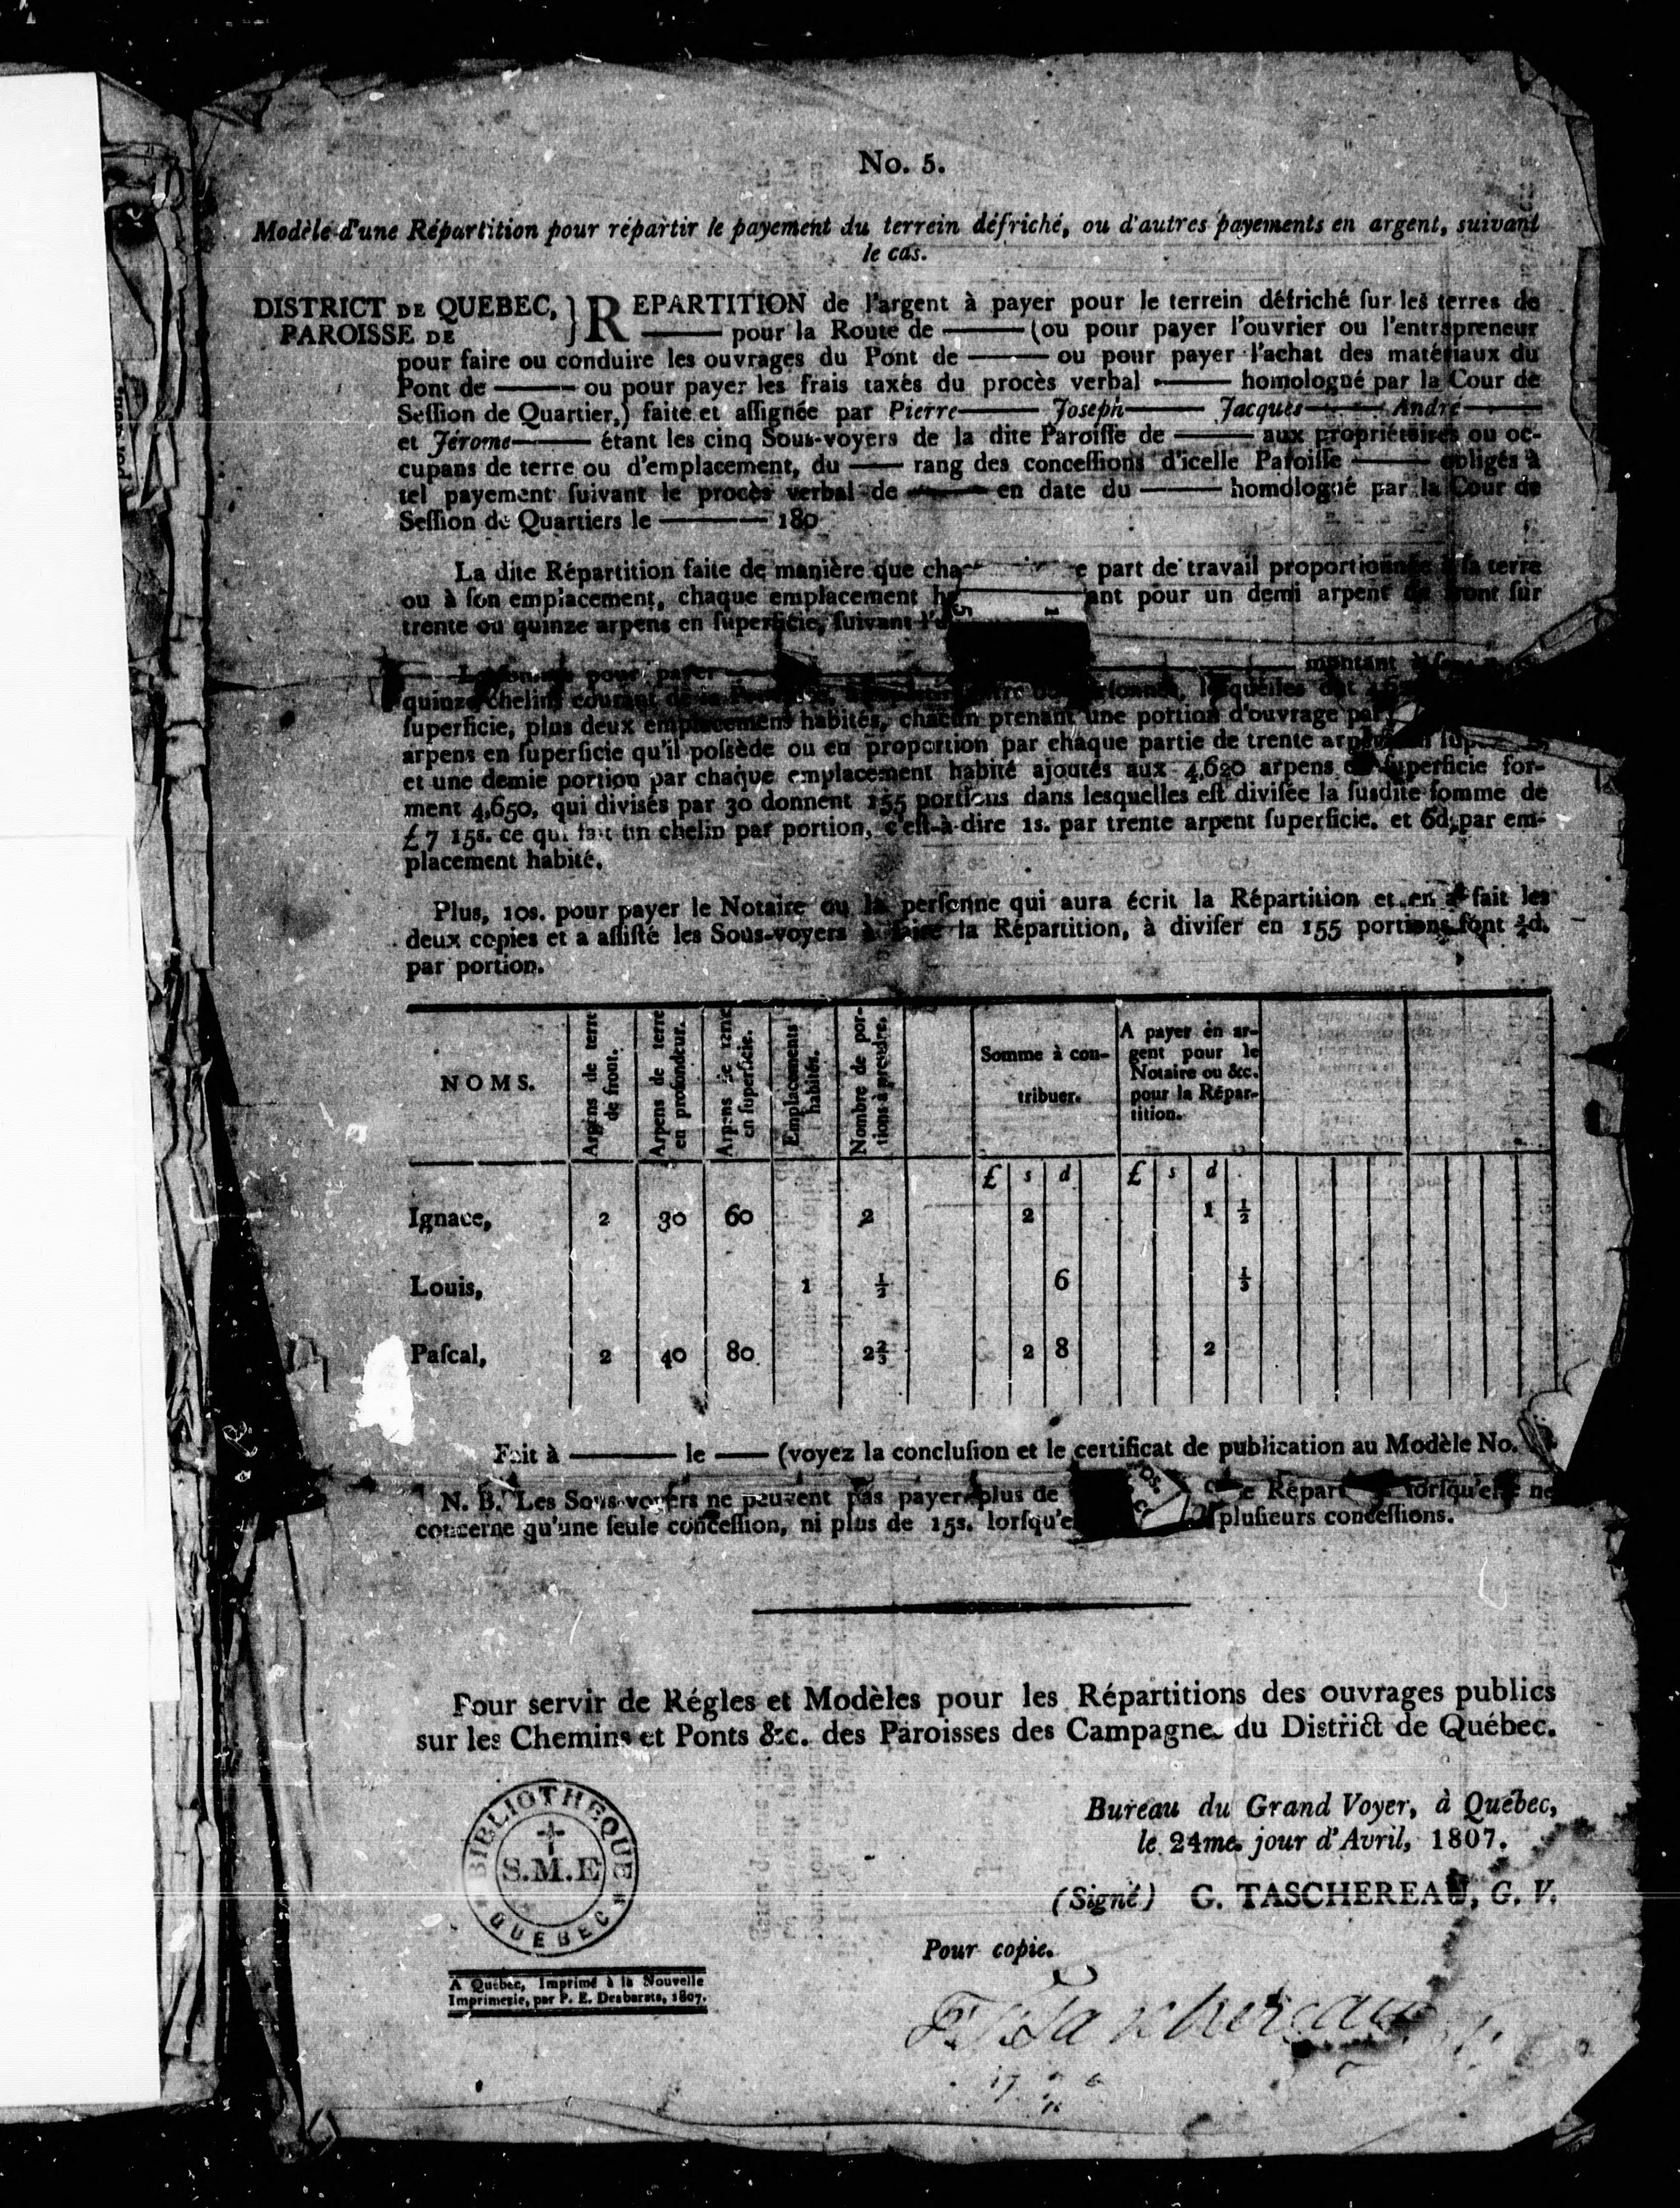 No. 5.
Modèle d'une Répartition pour répartir le payement du terrein défriché, ou d'autres payements en argent, suivant
le cas.
DISTRICT DE QUEBEC, } REPARTITION de l'argent à payer pour le terrein défriché ſur les terres de
PAROISSE DE ——— pour la Route de ——— (ou pour payer l'ouvrier ou l'entrepreneur
pour faire ou conduire les ouvrages du Pont de ——— ou pour payer l'achat des matériaux du
Pont de ——— ou pour payer les frais taxés du procès verbal ——— homologué par la Cour de
Seſſion de Quartier,) faite et aſſignée par Pierre——— Joseph——— Jacques——— André———
et Jérome——— étant les cinq Sous-voyers de la dite Paroiſſe de ——— aux propriétaires ou oc-
cupans de terre ou d'emplacement, du —— rang des conceſſions d'icelle Paroiſſe ——— obligés à
tel payement ſuivant le procès verbal de ——— en date du ——— homologué par la Cour de
Seſſion de Quartiers le ———— 180
La dite Répartition faite de manière que part de travail proportionnée à ſa terre
ou à ſon emplacement, chaque emplacement pour un demi arpent de front ſur
trente ou quinze arpens en ſuperficie, ſuivant
pour payer montant
quinze chelins courant
ſuperficie, plus deux emplacemens habités, chacun prenant une portion d'ouvrage par
arpens en ſuperficie qu'il poſsède ou en proportion par chaque partie de trente arpens
et une demie portion par chaque emplacement habité ajoutés aux 4,620 arpens ſuperficie for-
ment 4,650, qui diviſés par 30 donnent 155 portions dans lesquelles eſt diviſée la ſuſdite ſomme de
£7 15s. ce qui fait un chelin par portion, c'eſt-à-dire 1s. par trente arpent ſuperficie. et 6d. par em-
placement habité.
Plus, 10s. pour payer le Notaire ou la perſonne qui aura écrit la Répartition et en a fait les
deux copies et a aſſiſté les Sous-voyers à faire la Répartition, à diviſer en 155 portions ſont ¾d.
par portion.
NOMS. Arpens de terre de front. Arpens de terre en profondeur. Arpens de terre en ſuperficie. Emplacements habités. Nombre de por-tions à prendre. Somme à con-tribuer. A payer en ar-gent pour le Notaire ou &c. pour la Répar-tition.
£ s d £ s d
Ignace, 2 30 60 2 2 1 ½
Louis, 1 ½ 6 ⅓
Paſcal, 2 40 80 2⅔ 2 8 2
Fait à ———— le —— (voyez la concluſion et le certificat de publication au Modèle No.
N. B. Les Sous-voyers ne peuvent pas payer plus de lorſqu'elle ne
concerne qu'une ſeule conceſſion, ni plus de 15s. pluſieurs conceſſions.
Pour servir de Régles et Modèles pour les Répartitions des ouvrages publics
sur les Chemins et Ponts &c. des Paroisses des Campagnes du District de Québec.
Bureau du Grand Voyer, à Québec,
le 24me. jour d'Avril, 1807.
(Signé) G. TASCHEREAU, G. V.
Pour copie.
Taschereau
BIBLIOTHEQUE
S.M.E
QUEBEC
A Québec, Imprimé à la Nouvelle
Imprimerie, par P. E. Desbarats, 1807.